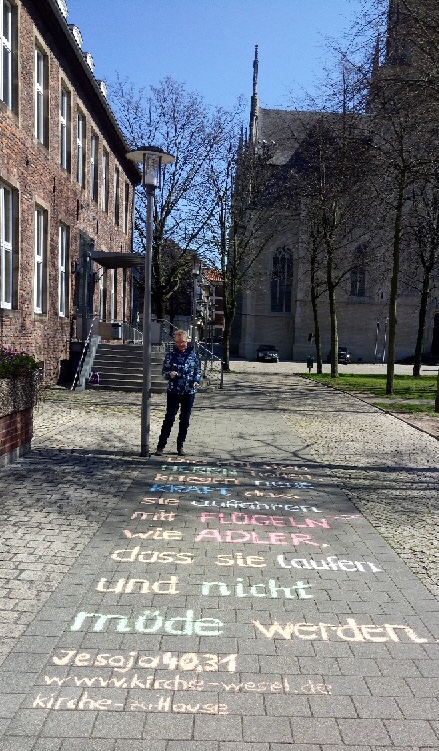 HERRN
kriegen neue
KRAFT, dass
sie auffahren
mit FLÜGELN
wie ADLER,
dass sie laufen
und nicht
müde werden
Jesaja 40,31
www.kirche-wesel.de
kirche-zuHause